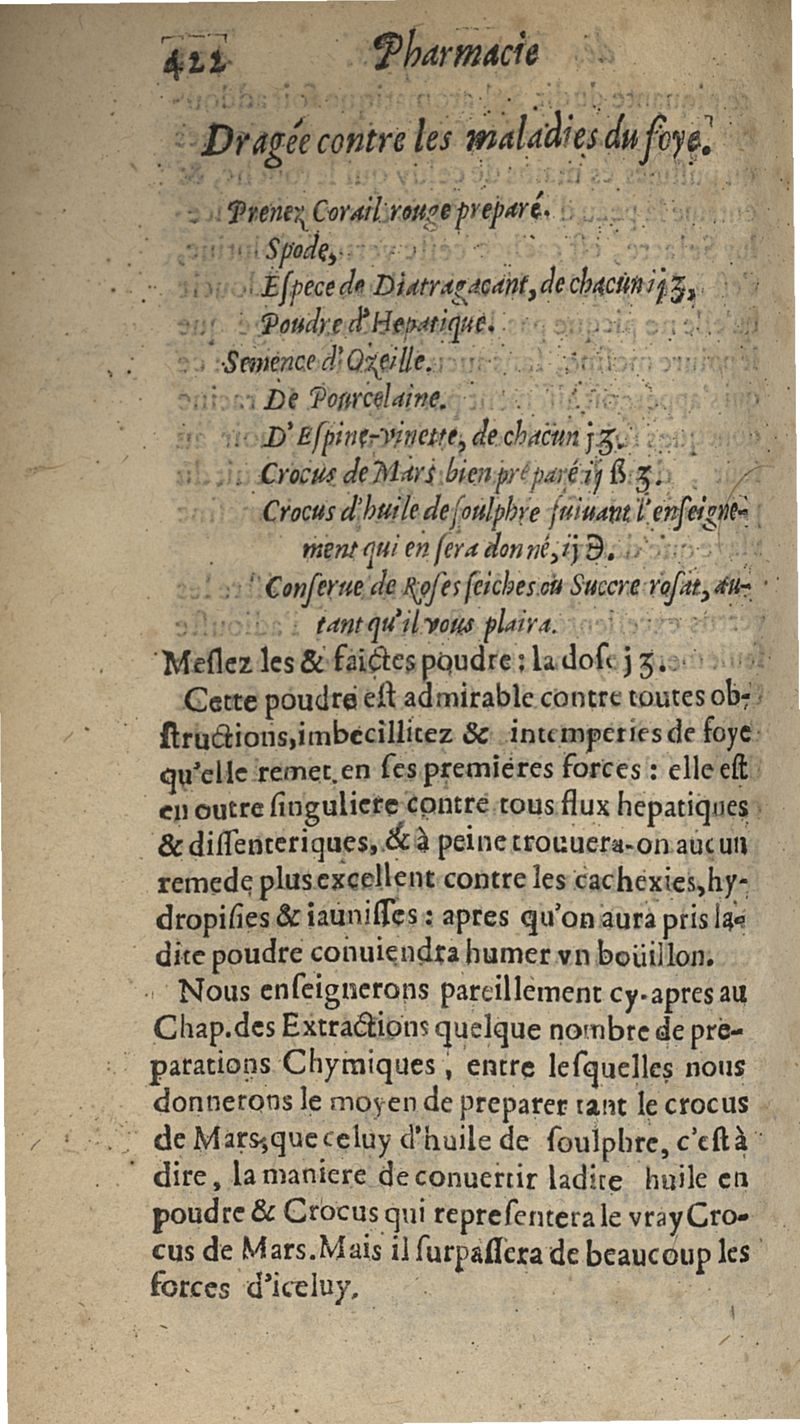 422 Pharmacie
Dragée contre les maladies du foye.
Prenez Corail rouge preparé.
Spode,
Eſpece de Diatragacant, de chacun ij ʒ,
Poudre d'Hepatique.
Semence d'Ozeille.
De Pourcelaine.
D'Eſpine-vinette, de chacun j ʒ.
Crocus de Mars bien préparé ij ß ʒ.
Crocus d'huile de ſoulphre ſuiuant l'enſeigne-
ment qui en ſera donné, ij ℈.
Conſerue de Roſes ſeiches ou Succre roſat, au-
tant qu'il vous plaira.
Meſlez les & faictes poudre : la doſe j ʒ.
Cette poudre eſt admirable contre toutes ob-
ſtructions, imbecillitez & intemperies de foye
qu'elle remet en ſes premieres forces : elle eſt
en outre ſinguliere contre tous flux hepatiques
& diſſenteriques, & à peine trouuera-on aucun
remede plus excellent contre les cachexies, hy-
dropiſies & iauniſſes : apres qu'on aura pris la-
dite poudre conuiendra humer vn boüillon.
Nous enſeignerons pareillement cy-apres au
Chap. des Extractions quelque nombre de pre-
parations Chymiques, entre leſquelles nous
donnerons le moyen de preparer tant le crocus
de Mars, que celuy d'huile de ſoulphre, c'eſt à
dire, la maniere de conuertir ladite huile en
poudre & Crocus qui repreſentera le vray Cro-
cus de Mars. Mais il ſurpaſſera de beaucoup les
forces d'iceluy.